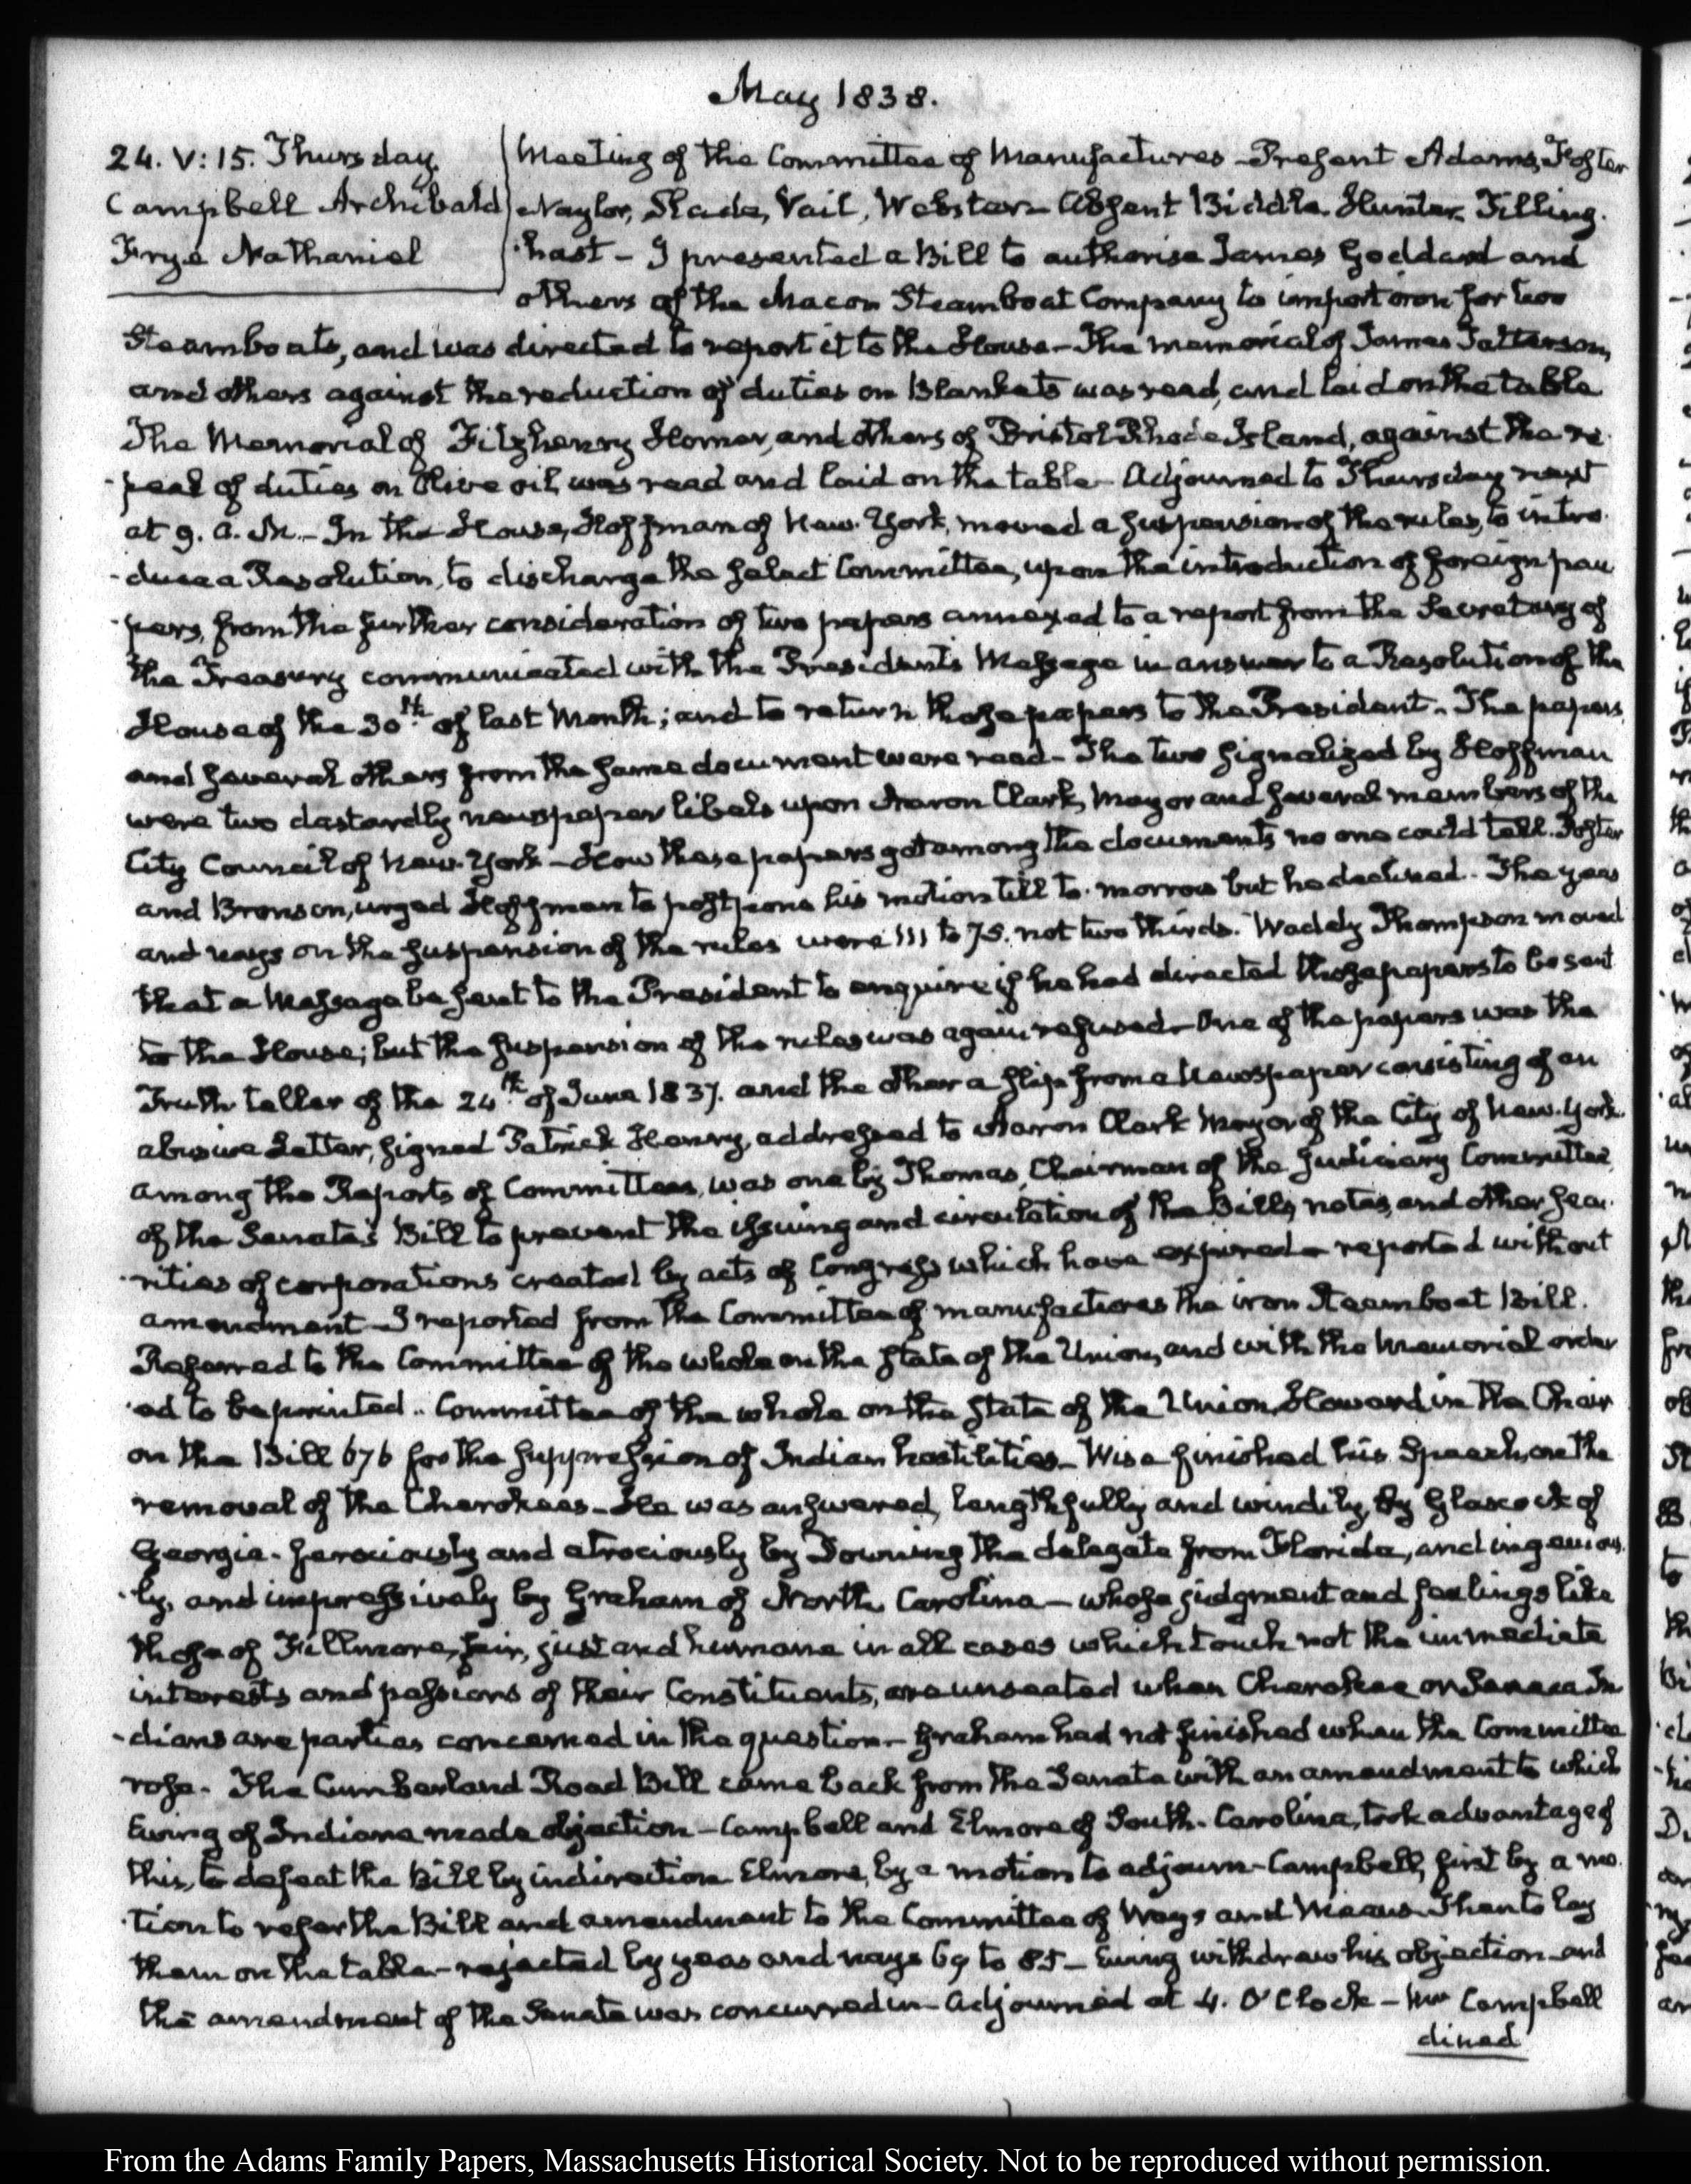 May 1838.
24. V: 15. Thursday.
Campbell Archibald
Frye Nathaniel
Meeting of the Committee of Manufactures – Present Adams, Foster
Naylor, Slade, Vail, Webster – Absent Biddle. Hunter. Tilling-
-hast – I presented a Bill to authorise James Goddard and
others of the Macon Steamboat Company to import iron for two
Steamboats, and was directed to report it to the House – The memorial of James Patterson,
and others against the reduction of duties on Blankets was read, and laid on the table
The Memorial of Fitzhenry Homer, and others of Bristol Rhode Island, against the re-
-peal of duties on Olive oil, was read and laid on the table – Adjourned to Thursday next
at 9. A.M. – In the House, Hoffman of New-York, moved a suspension of the rules, to intro-
-duce a Resolution, to discharge the select Committee, upon the introduction of foreign pau
-pers, from the further consideration of two papers annexed to a report from the Secretary of
the Treasury communicated with the President's Message in answer to a Resolution of the
House of the 30th. of last Month; and to return those papers to the President. The papers
and several others from the same document were read – The two signalized by Hoffman
were two dastardly newspaper libels upon Aaron Clark, Mayor and several members of the
City Council of New-York – How these papers got among the documents no one could tell. Foster
and Bronson, urged Hoffman to postpone his motion till to-morrow but he declined. The yeas
and nays on the suspension of the rules were 111 to 75. not two thirds. Waddy Thompson moved
that a Message be sent to the President to enquire if he had directed those papers to be sent
to the House; but the suspension of the rules was again refused – One of the papers was the
Truth teller of the 24th. of June 1837. and the other a slip from a Newspaper consisting of an
abusive Letter, signed Patrick Henry, addressed to Aaron Clark Mayor of the City of New-York.
Among the Reports of Committees, was one by Thomas, Chairman of the Judiciary Committee
of the Senate's Bill to prevent the issuing and circulation of the Bills, notes, and other secu-
-rities of corporations created by acts of Congress which have expired – reported without
amendment – I reported from the Committee of manufactures the iron Steamboat Bill.
Referred to the Committee of the whole on the state of the Union, and with the Memorial order
-ed to be printed. Committee of the whole on the state of the Union, Howard in the Chair
on the Bill 676 for the suppression of Indian hostilities – Wise finished his Speech, on the
removal of the Cherokees – He was answered, lengthfully and windily, by Glascock of
Georgia. ferociously and atrociously by Downing the delegate from Florida, and ingenious-
-ly, and impressively by Graham of North Carolina – whose judgment and feelings like
those of Fillmore, fair, just and humane in all cases which touch not the immediate
interests and passions of their Constituents, are unseated when Cherokee or Seneca In
-dians are parties concerned in the question – Graham had not finished when the Committee
rose. The Cumberland Road Bill came back from the Senate with an amendment to which
Ewing of Indiana made objection – Campbell and Elmore of South-Carolina, took advantage of
this, to defeat the Bill by indirection Elmore, by a motion to adjourn – Campbell, first by a mo-
-tion to refer the Bill and amendment to the Committee of Ways and Means – Then to lay
them on the table – rejected by yeas and nays 69 to 85 – Ewing withdrew his objection – and
the amendment of the Senate was concurred in – Adjourned at 4. O'Clock – Mr Campbell
dined
From the Adams Family Papers, Massachusetts Historical Society. Not to be reproduced without permission.